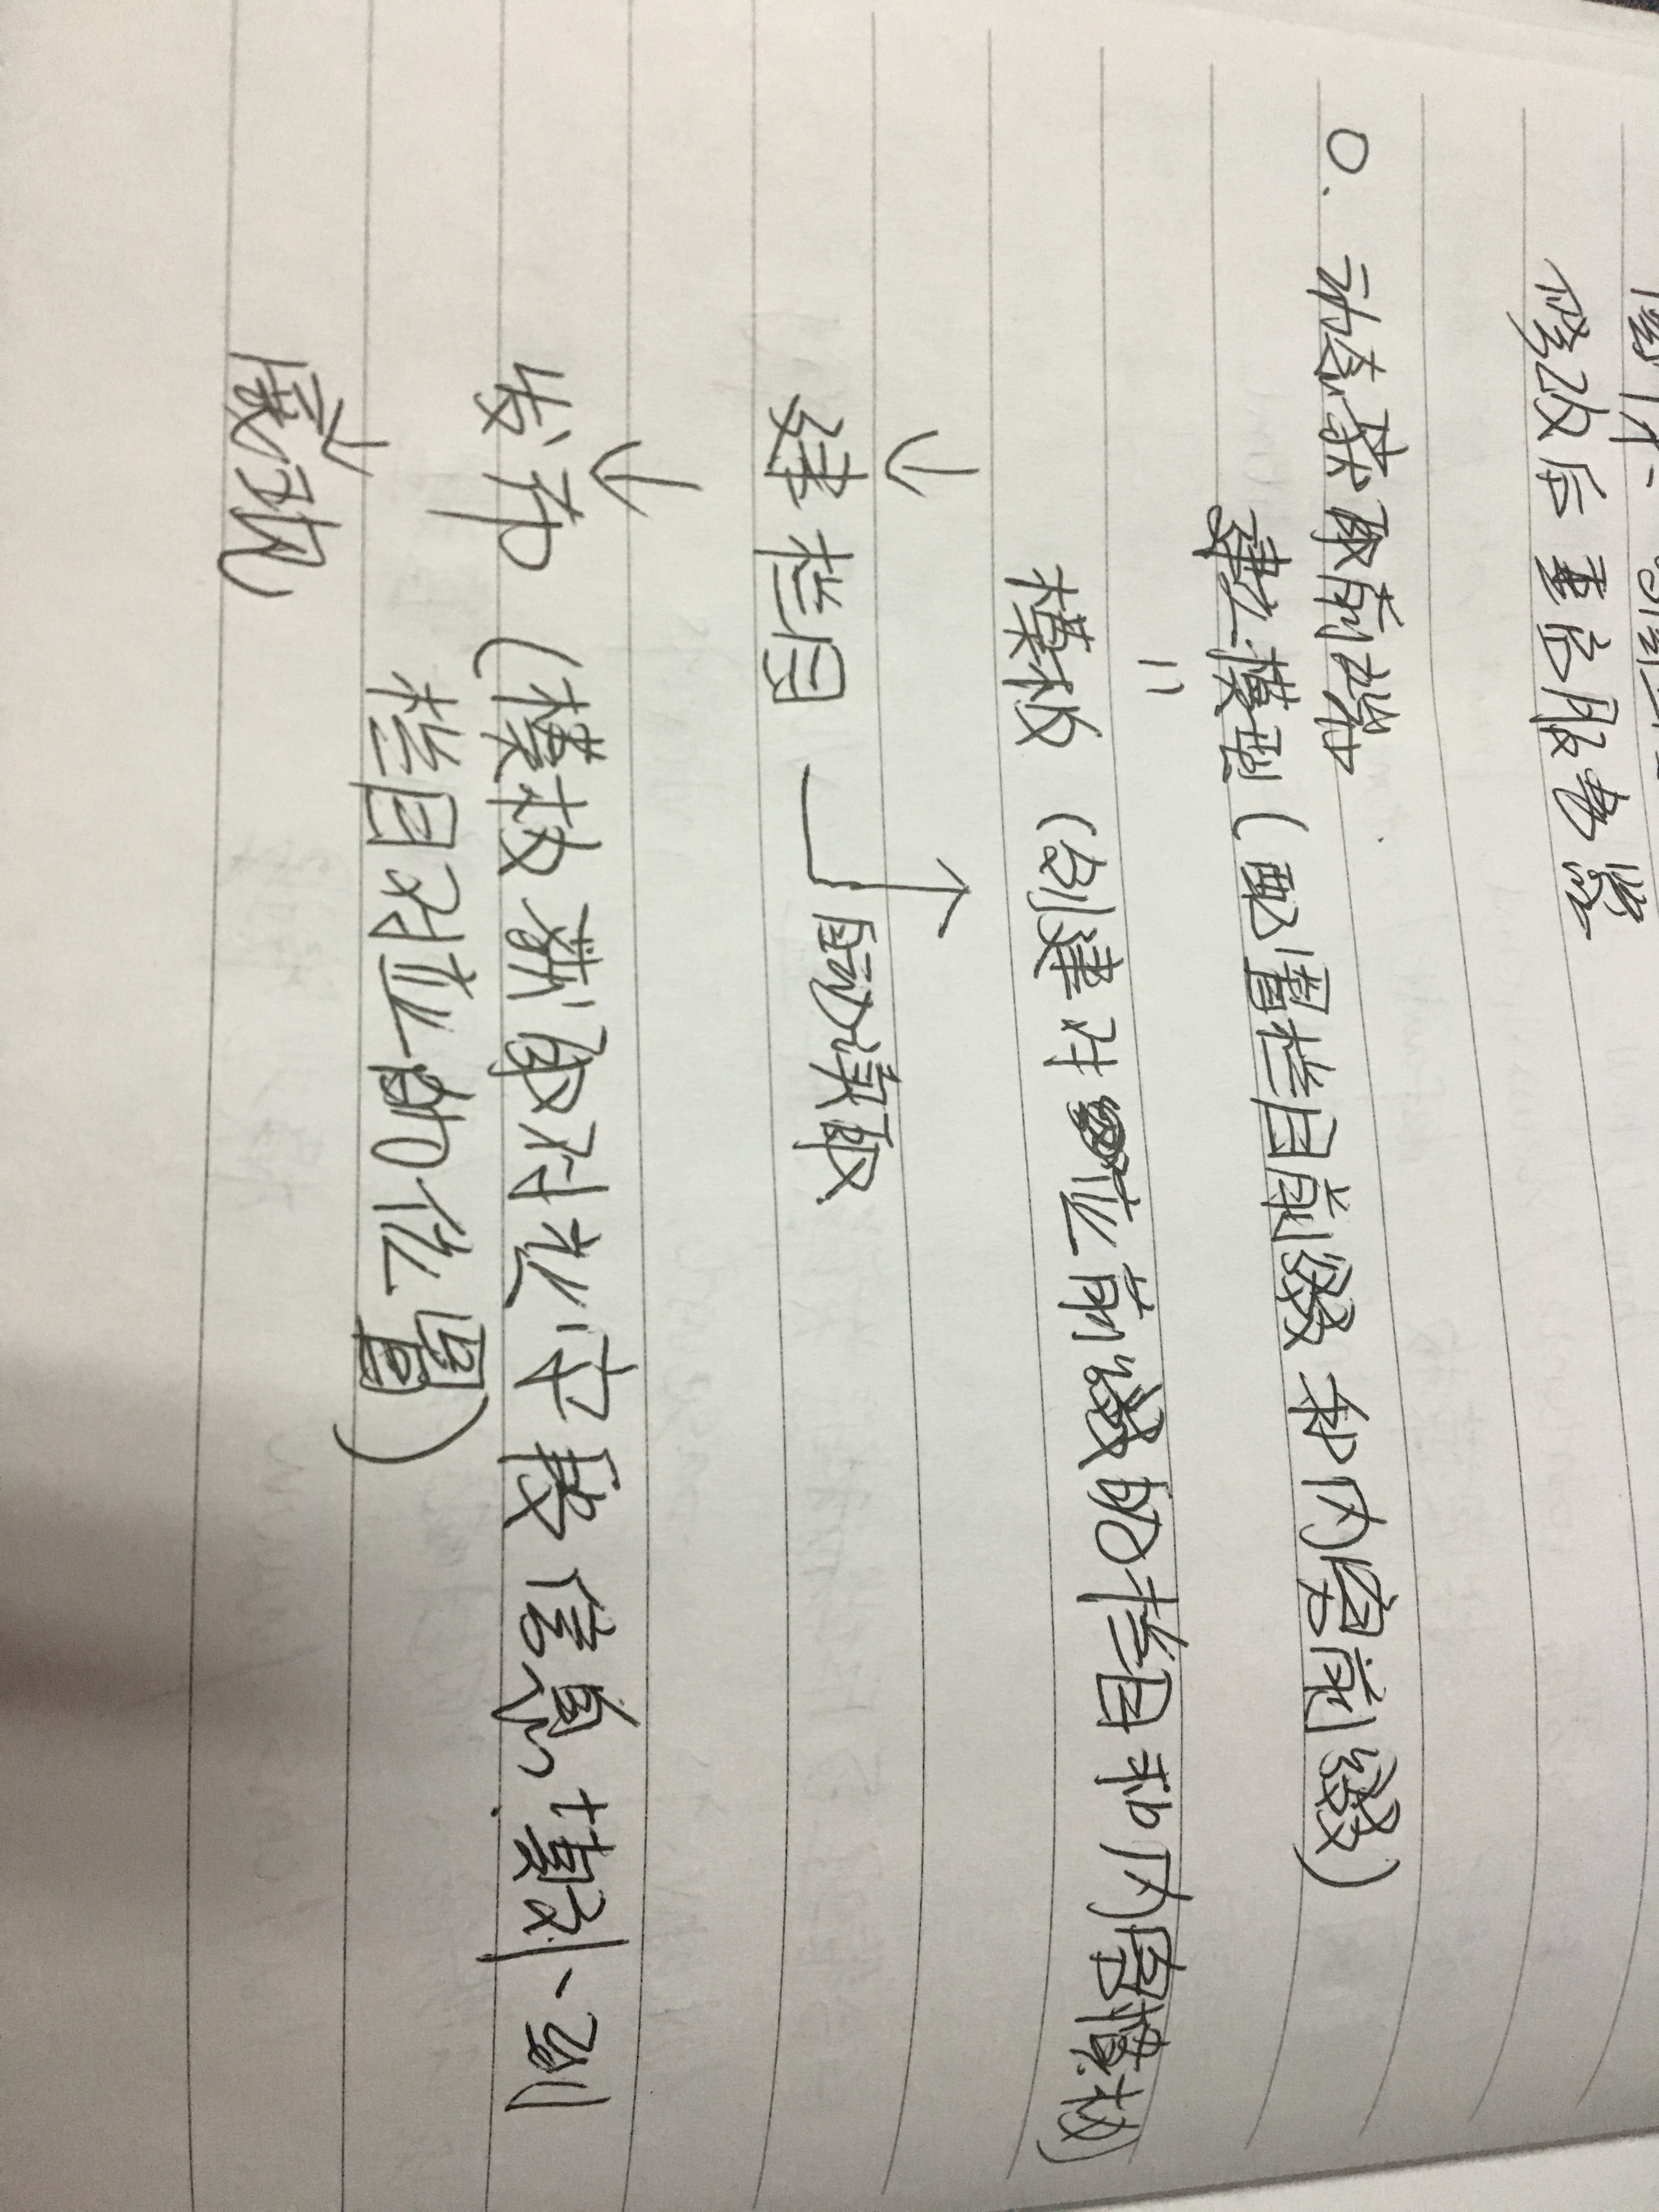 修改后重启服务器
0. 动态获取前端
建立模型(配置栏目前缀和内容前缀)
=
模板 (创建对应前缀的栏目和内容模板)
↓
建栏目 → 自动读取
↓
发布 (模板新闻对龙字段信息填到、到
栏目对应的位置)
↓